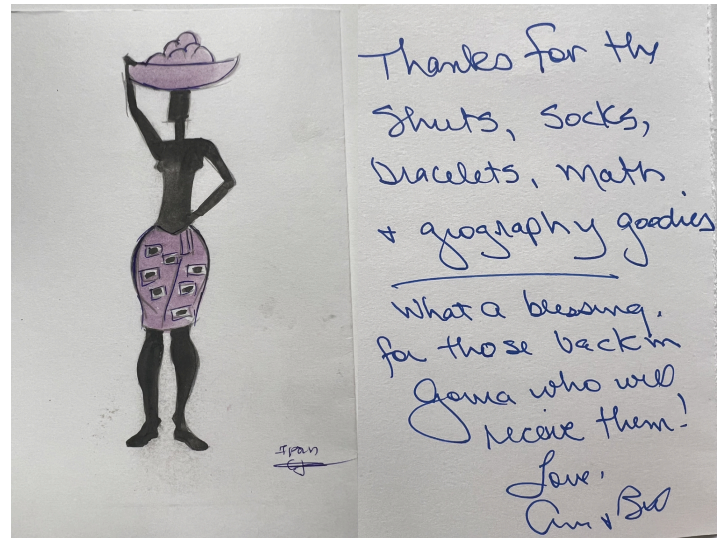 Thanks for the
Shirts, Socks,
bracelets, math
+ geography goodies
What a blessing.
for those back in
Goma who will
receive them!
Love,
Ann + Bill
Ipan